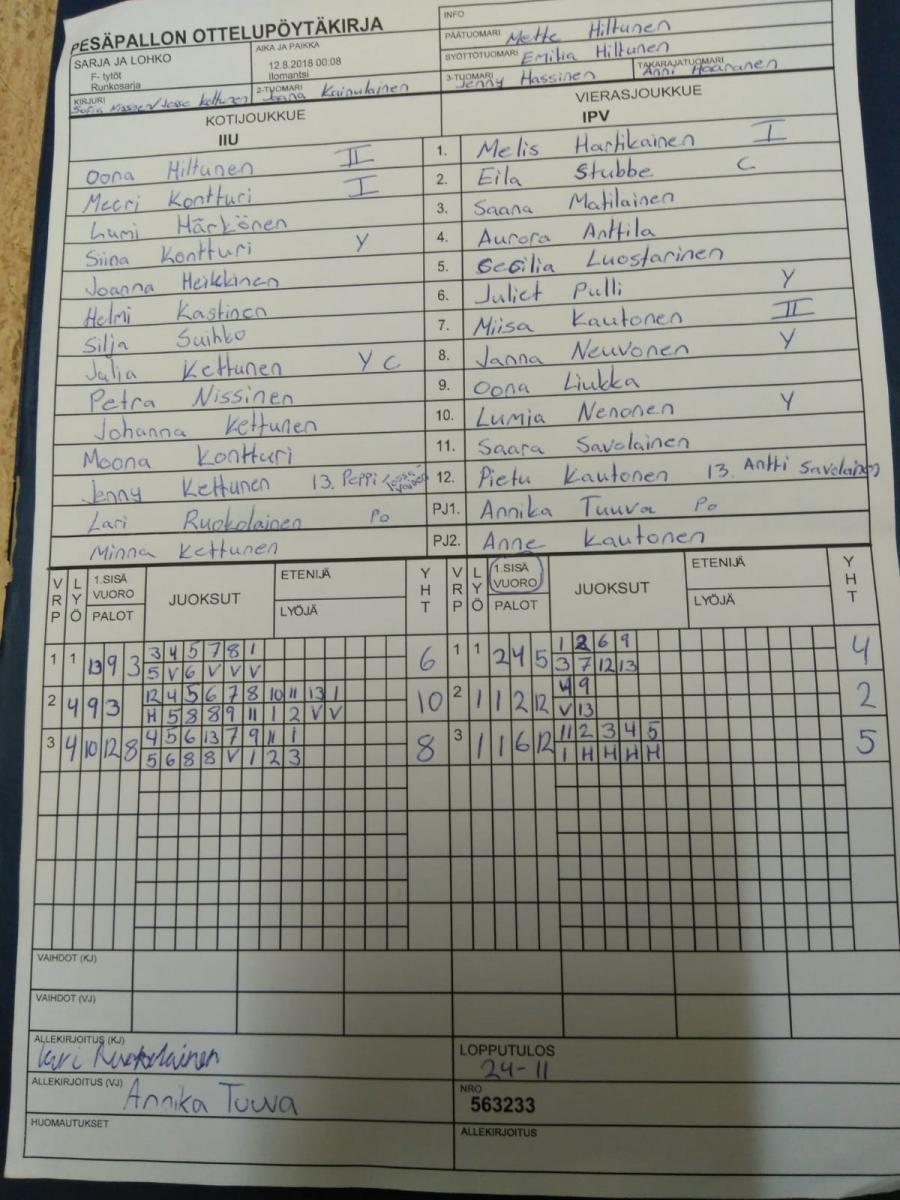 PESÄPALLON OTTELUPÖYTÄKIRJA
INFO
PÄÄTUOMARI Mette Hiltunen
SARJA JA LOHKO
F- tytöt
Runkosarja
AIKA JA PAIKKA
12.8.2018 00:08
Ilomantsi
SYÖTTÖTUOMARI Emilia Hiltunen
KIRJURI
Jesse Kettunen
2-TUOMARI Joana Kainulainen
3-TUOMARI Jenny Hassinen
TAKARAJATUOMARI
Anni
KOTIJOUKKUE
IIU
VIERASJOUKKUE
IPV
Oona Hiltunen II 1. Melis Hartikainen I
Meeri Kontturi I 2. Eila Stubbe C
Lumi Härkönen 3. Saana Matilainen
Siina Kontturi Y 4. Aurora Anttila
Joanna Heikkinen 5. Cecilia Luostarinen
Helmi Kastinen 6. Juliet Pulli Y
Silja Suihko 7. Miisa Kautonen II
Julia Kettunen Y C 8. Janna Neuvonen Y
Petra Nissinen 9. Oona Liukka
Johanna Kettunen 10. Lumia Nenonen Y
Moona Kontturi 11. Saara Savolainen
Jenny Kettunen 13. Peppi 12. Pietu Kautonen 13. Antti Savolainen
Lari Ruokolainen Po PJ1. Annika Tuuva Po
Minna Kettunen PJ2. Anne Kautonen
VRP LYÖ 1.SISÄ VUORO PALOT JUOKSUT ETENIJÄ LYÖJÄ YHT VRP LYÖ 1.SISÄ VUORO PALOT JUOKSUT ETENIJÄ LYÖJÄ YHT
1 1 13 9 3 3 4 5 7 8 1 6 1 1 2 4 5 1 2 6 9 4
5 V 6 V V V 3 7 12 13
2 4 9 3 12 4 5 6 7 8 10 11 13 1 10 2 1 1 2 12 4 9 2
H 5 8 8 9 11 1 2 V V V 13
3 4 10 12 8 4 5 6 13 7 9 11 1 8 3 1 1 6 12 11 2 3 4 5 5
5 6 8 8 V 1 2 3 1 H H H H
VAIHDOT (KJ)
VAIHDOT (VJ)
ALLEKIRJOITUS (KJ)
Lari Ruokolainen
LOPPUTULOS
24-11
ALLEKIRJOITUS (VJ)
Annika Tuuva
NRO
563233
HUOMAUTUKSET
ALLEKIRJOITUS